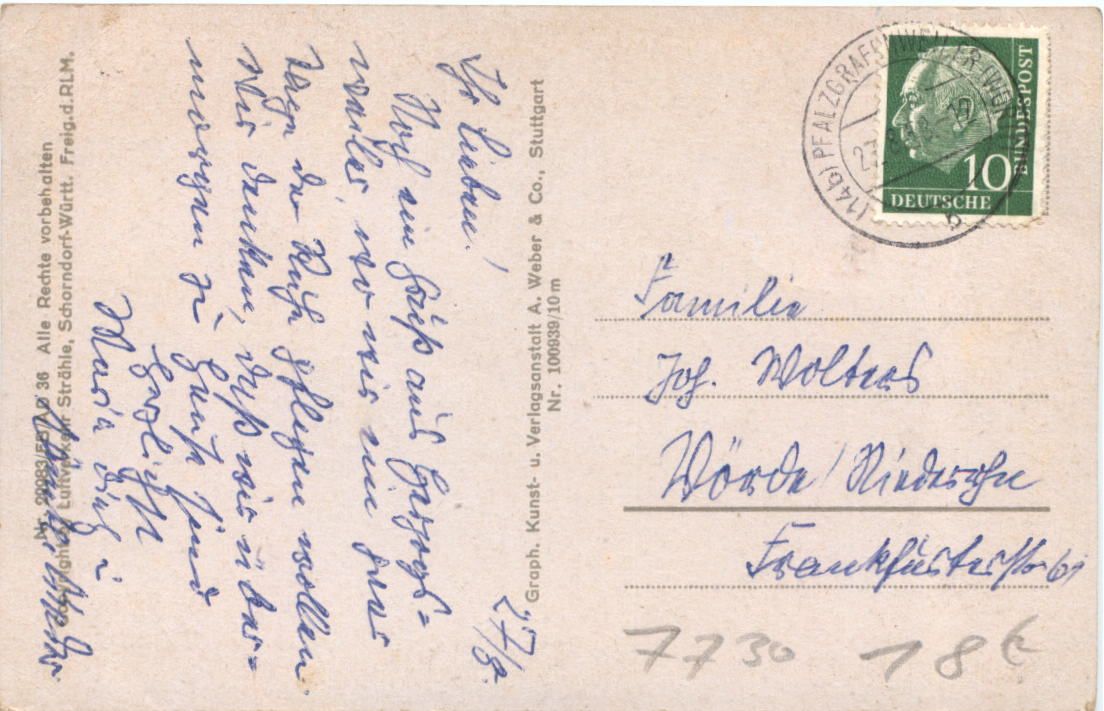 27/8.
Ihr Lieben!
Noch ein Gruß aus Herzogs=
weiler, wo wir ein paar
Tage der Ruhe pflegen wollen.
Wir denken, daß wir über=
morgen zu Hause sind
Herzlichst
Maria
Nr. 29083/EB/AD 36 Alle Rechte vorbehalten
Copyright by Luftverkehr Strähle, Schorndorf-Württ. Freig.d.RLM.
Graph. Kunst- u. Verlagsanstalt A. Weber & Co., Stuttgart
Nr. 100939/10 m
(14b) PFALZGRAFENWEILER
b
BUNDESPOST
10
DEUTSCHE
Familie
Joh. Wolters
Vörde/Niederrhn
Frankfurterstr 61
7730 18 €